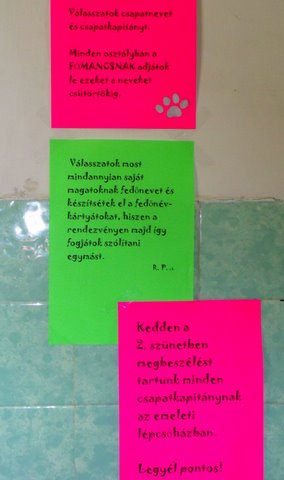 Válasszatok csapatnevet
és csapatkapitányt.
Minden osztályban a
FŐMANCSNAK adjátok
le ezeket a neveket
csütörtökig.
Válasszatok most
mindannyian saját
magatoknak fedőnevet és
készítsétek el a fedőnév-
kártyátokat, hiszen a
rendezvényen majd így
fogjátok szólítani
egymást.
R. P.
Kedden a
2. szünetben
megbeszélést
tartunk minden
csapatkapitánynak
az emeleti
lépcsőházban.
Legyél pontos!